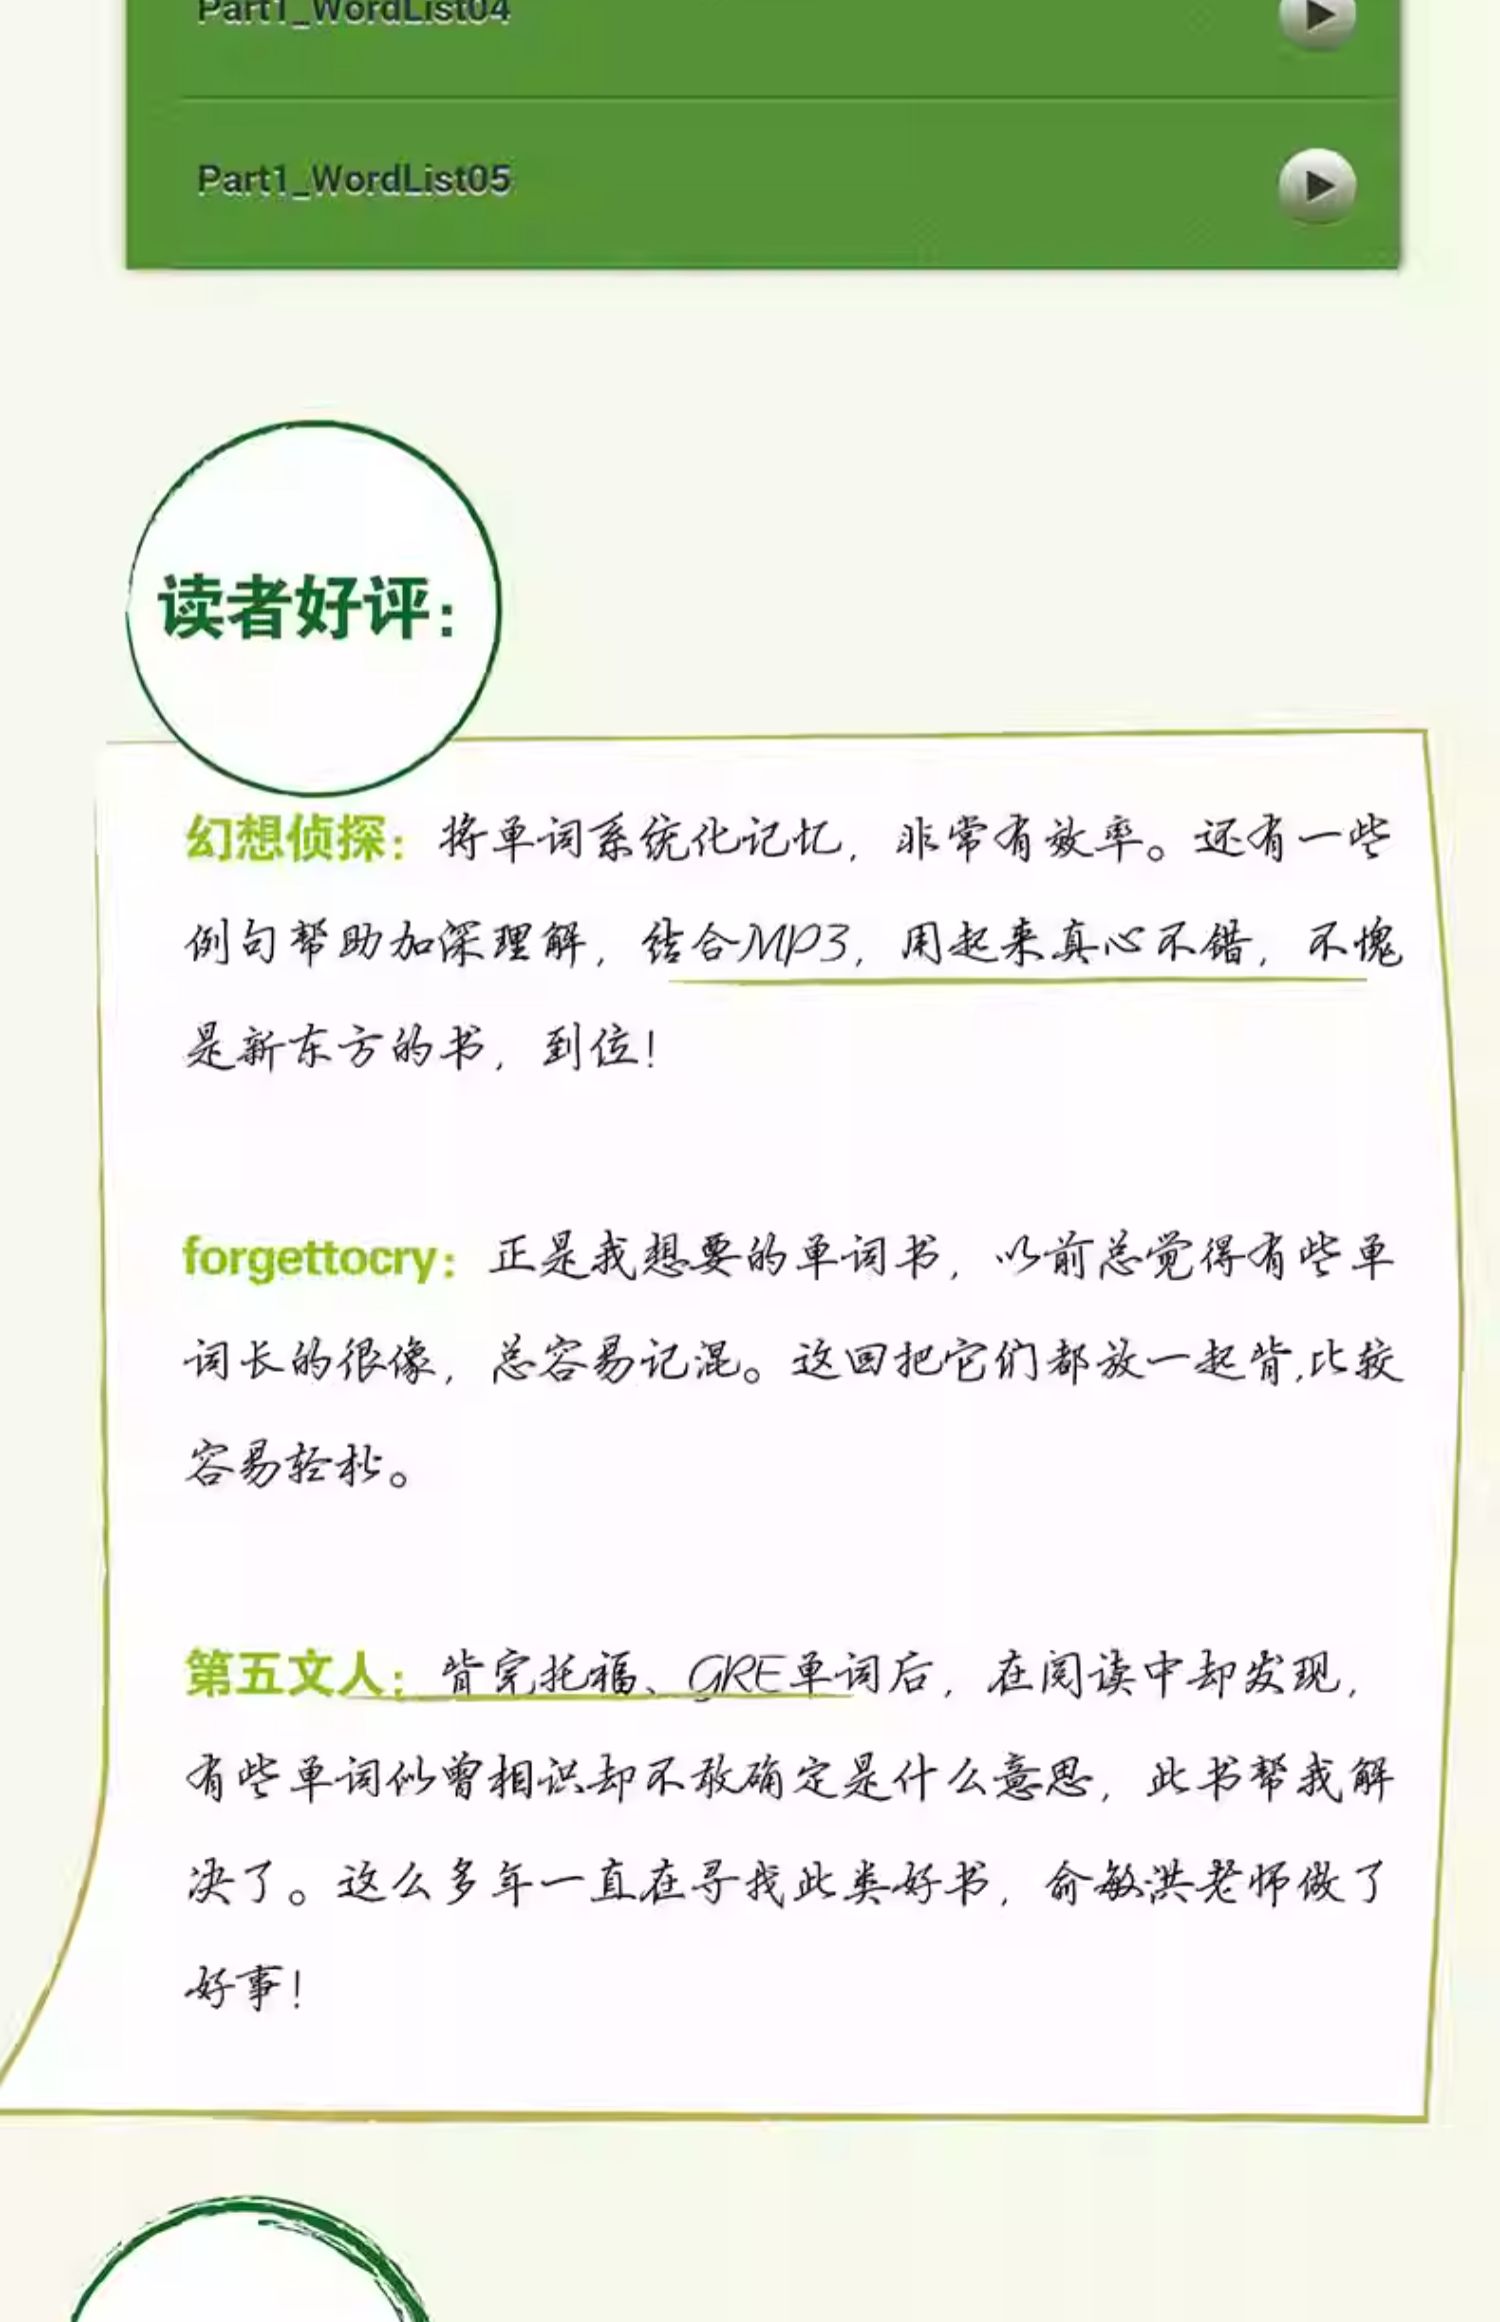 Part1_WordList04
Part1_WordList05
读者好评：
幻想侦探：将单词系统化记忆，非常有效率。还有一些
例句帮助加深理解，结合MP3，用起来真心不错，不愧
是新东方的书，到位！
forgettocry：正是我想要的单词书，以前总觉得有些单
词长的很像，总容易记混。这回把它们都放一起背,比较
容易轻松。
第五文人：背完托福、GRE单词后，在阅读中却发现，
有些单词似曾相识却不敢确定是什么意思，此书帮我解
决了。这么多年一直在寻找此类好书，俞敏洪老师做了
好事！